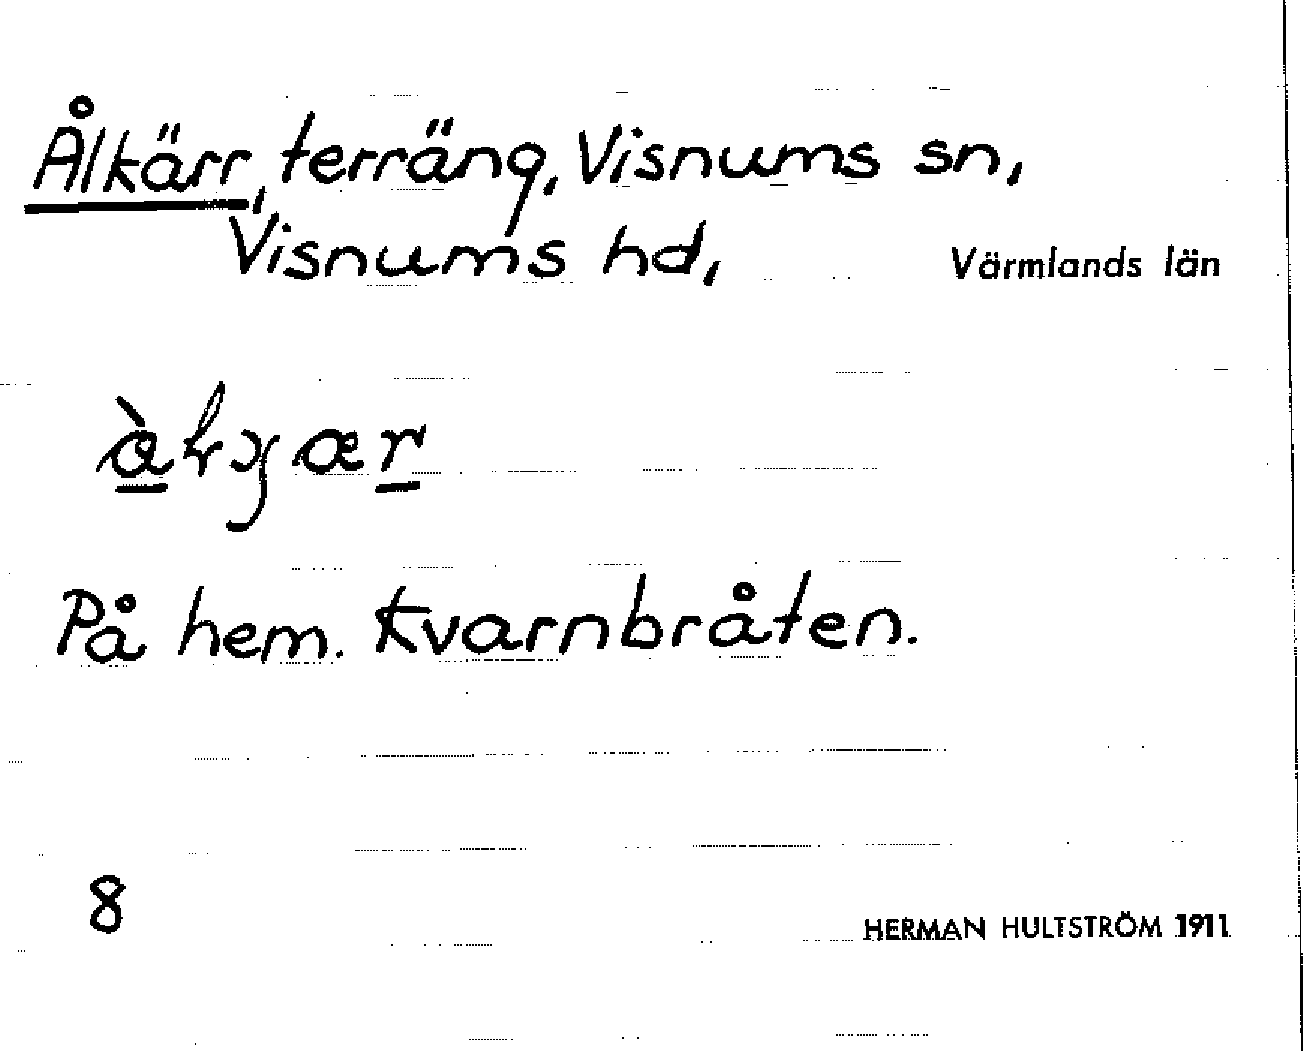 Ålkärr, terräng, Visnums sn,
Visnums hd, Värmlands län
På hem. Kvarnbråten.
8
HERMAN HULTSTRÖM 1911